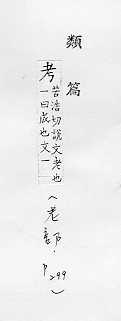 類篇
考
苦浩切說文老也
一曰成也文一
(老部·P299)